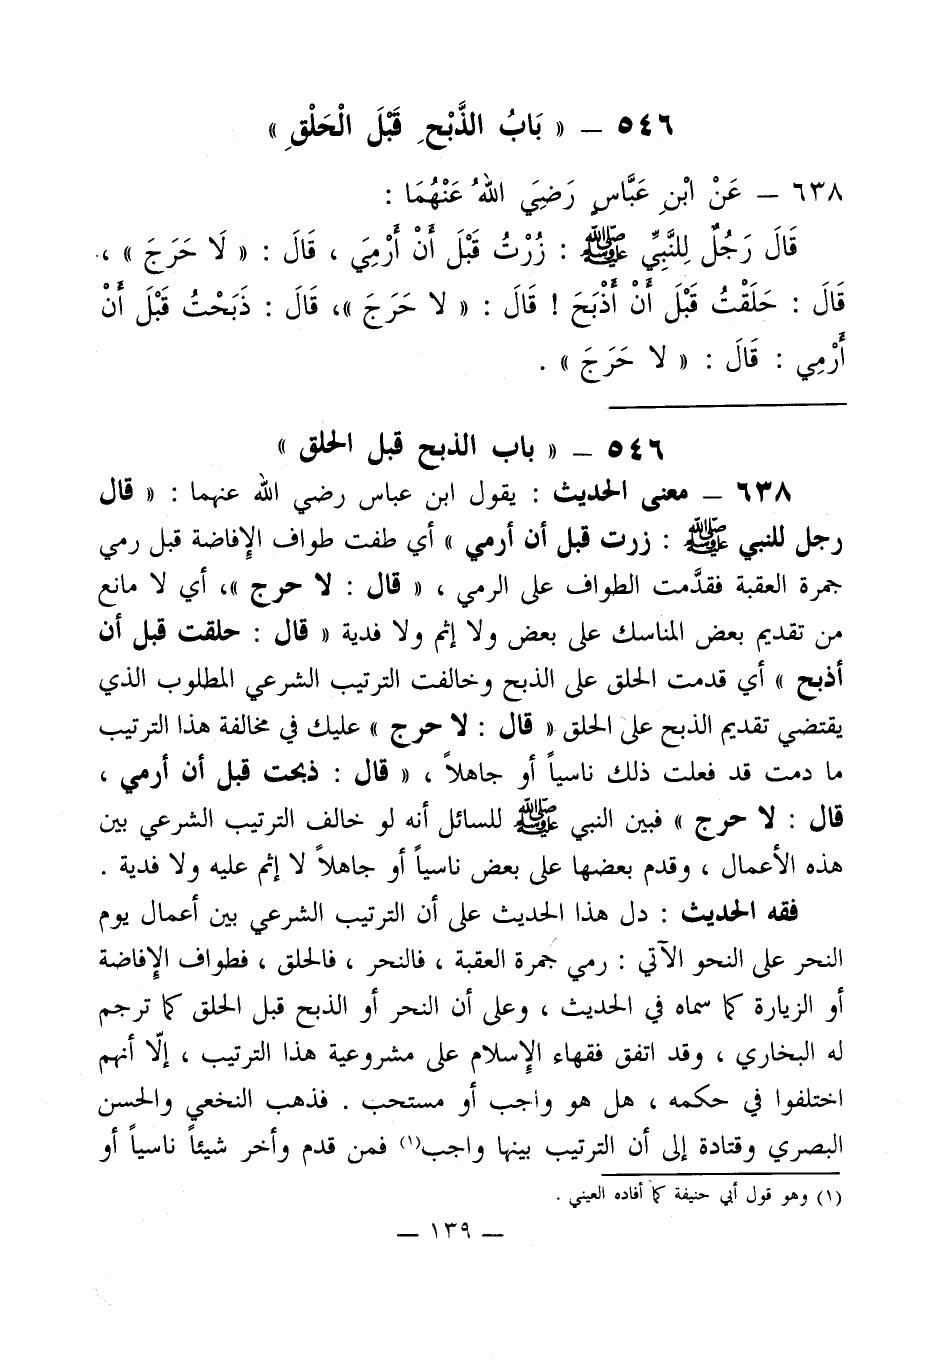 ٥٤٦ – « بَابُ الذَّبْحِ قَبْلَ الْحَلْقِ »
٦٣٨ – عَنْ ابْنِ عَبَّاسٍ رَضِيَ اللهُ عَنْهُمَا :
قَالَ رَجُلٌ لِلنَّبِيِّ ﷺ : زُرْتُ قَبْلَ أَنْ أَرْمِيَ ، قَالَ : « لَا حَرَجَ » ،
قَالَ : حَلَقْتُ قَبْلَ أَنْ أَذْبَحَ ! قَالَ : « لا حَرَجَ »، قَالَ : ذَبَحْتُ قَبْلَ أَنْ
أَرْمِي : قَالَ : « لا حَرَجَ » .
٥٤٦ – « باب الذبح قبل الحلق »
٦٣٨ – معنى الحديث : يقول ابن عباس رضي الله عنهما : « قال
رجل للنبي ﷺ : زرت قبل أن أرمي » أي طفت طواف الإفاضة قبل رمي
جمرة العقبة فقدَّمت الطواف على الرمي ، « قال : لا حرج »، أي لا مانع
من تقديم بعض المناسك على بعض ولا إثم ولا فدية « قال : حلقت قبل أن
أذبح » أي قدمت الحلق على الذبح وخالفت الترتيب الشرعي المطلوب الذي
يقتضي تقديم الذبح على الحلق « قال : لا حرج » عليك في مخالفة هذا الترتيب
ما دمت قد فعلت ذلك ناسياً أو جاهلاً ، « قال : ذبحت قبل أن أرمي ،
قال : لا حرج » فبين النبي ﷺ للسائل أنه لو خالف الترتيب الشرعي بين
هذه الأعمال ، وقدم بعضها على بعض ناسياً أو جاهلاً لا إثم عليه ولا فدية .
فقه الحديث : دل هذا الحديث على أن الترتيب الشرعي بين أعمال يوم
النحر على النحو الآتي : رمي جمرة العقبة ، فالنحر ، فالحلق ، فطواف الإفاضة
أو الزيارة كما سماه في الحديث ، وعلى أن النحر أو الذبح قبل الحلق كما ترجم
له البخاري ، وقد اتفق فقهاء الإسلام على مشروعية هذا الترتيب ، إلّا أنهم
اختلفوا في حكمه ، هل هو واجب أو مستحب . فذهب النخعي والحسن
البصري وقتادة إلى أن الترتيب بينها واجب(١) فمن قدم وأخر شيئاً ناسياً أو
(١) وهو قول أبي حنيفة كما أفاده العيني .
– ١٣٩ –